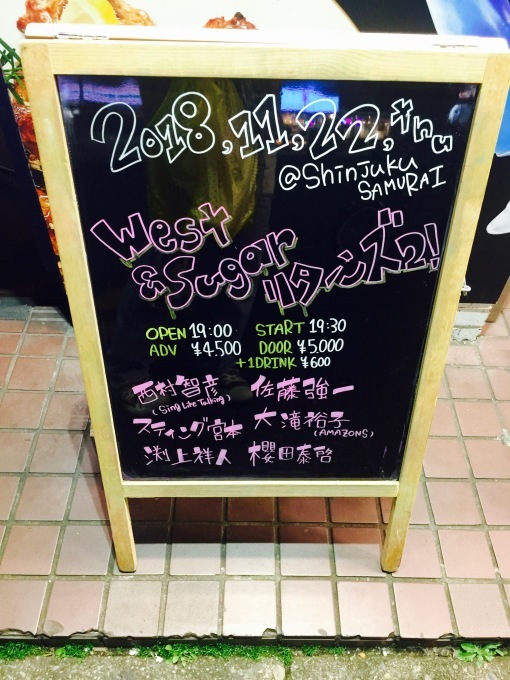 2018,11,22,thu
@Shinjuku
SAMURAI
West
&Sugar リターンズ2!
OPEN 19:00 START 19:30
ADV ¥4500 DOOR ¥5.000
+1DRINK ¥600
西村智彦 佐藤強一
(Sing Like Talking)
スティング宮本 大滝裕子
(AMAZONS)
渕上祥人 櫻田泰啓